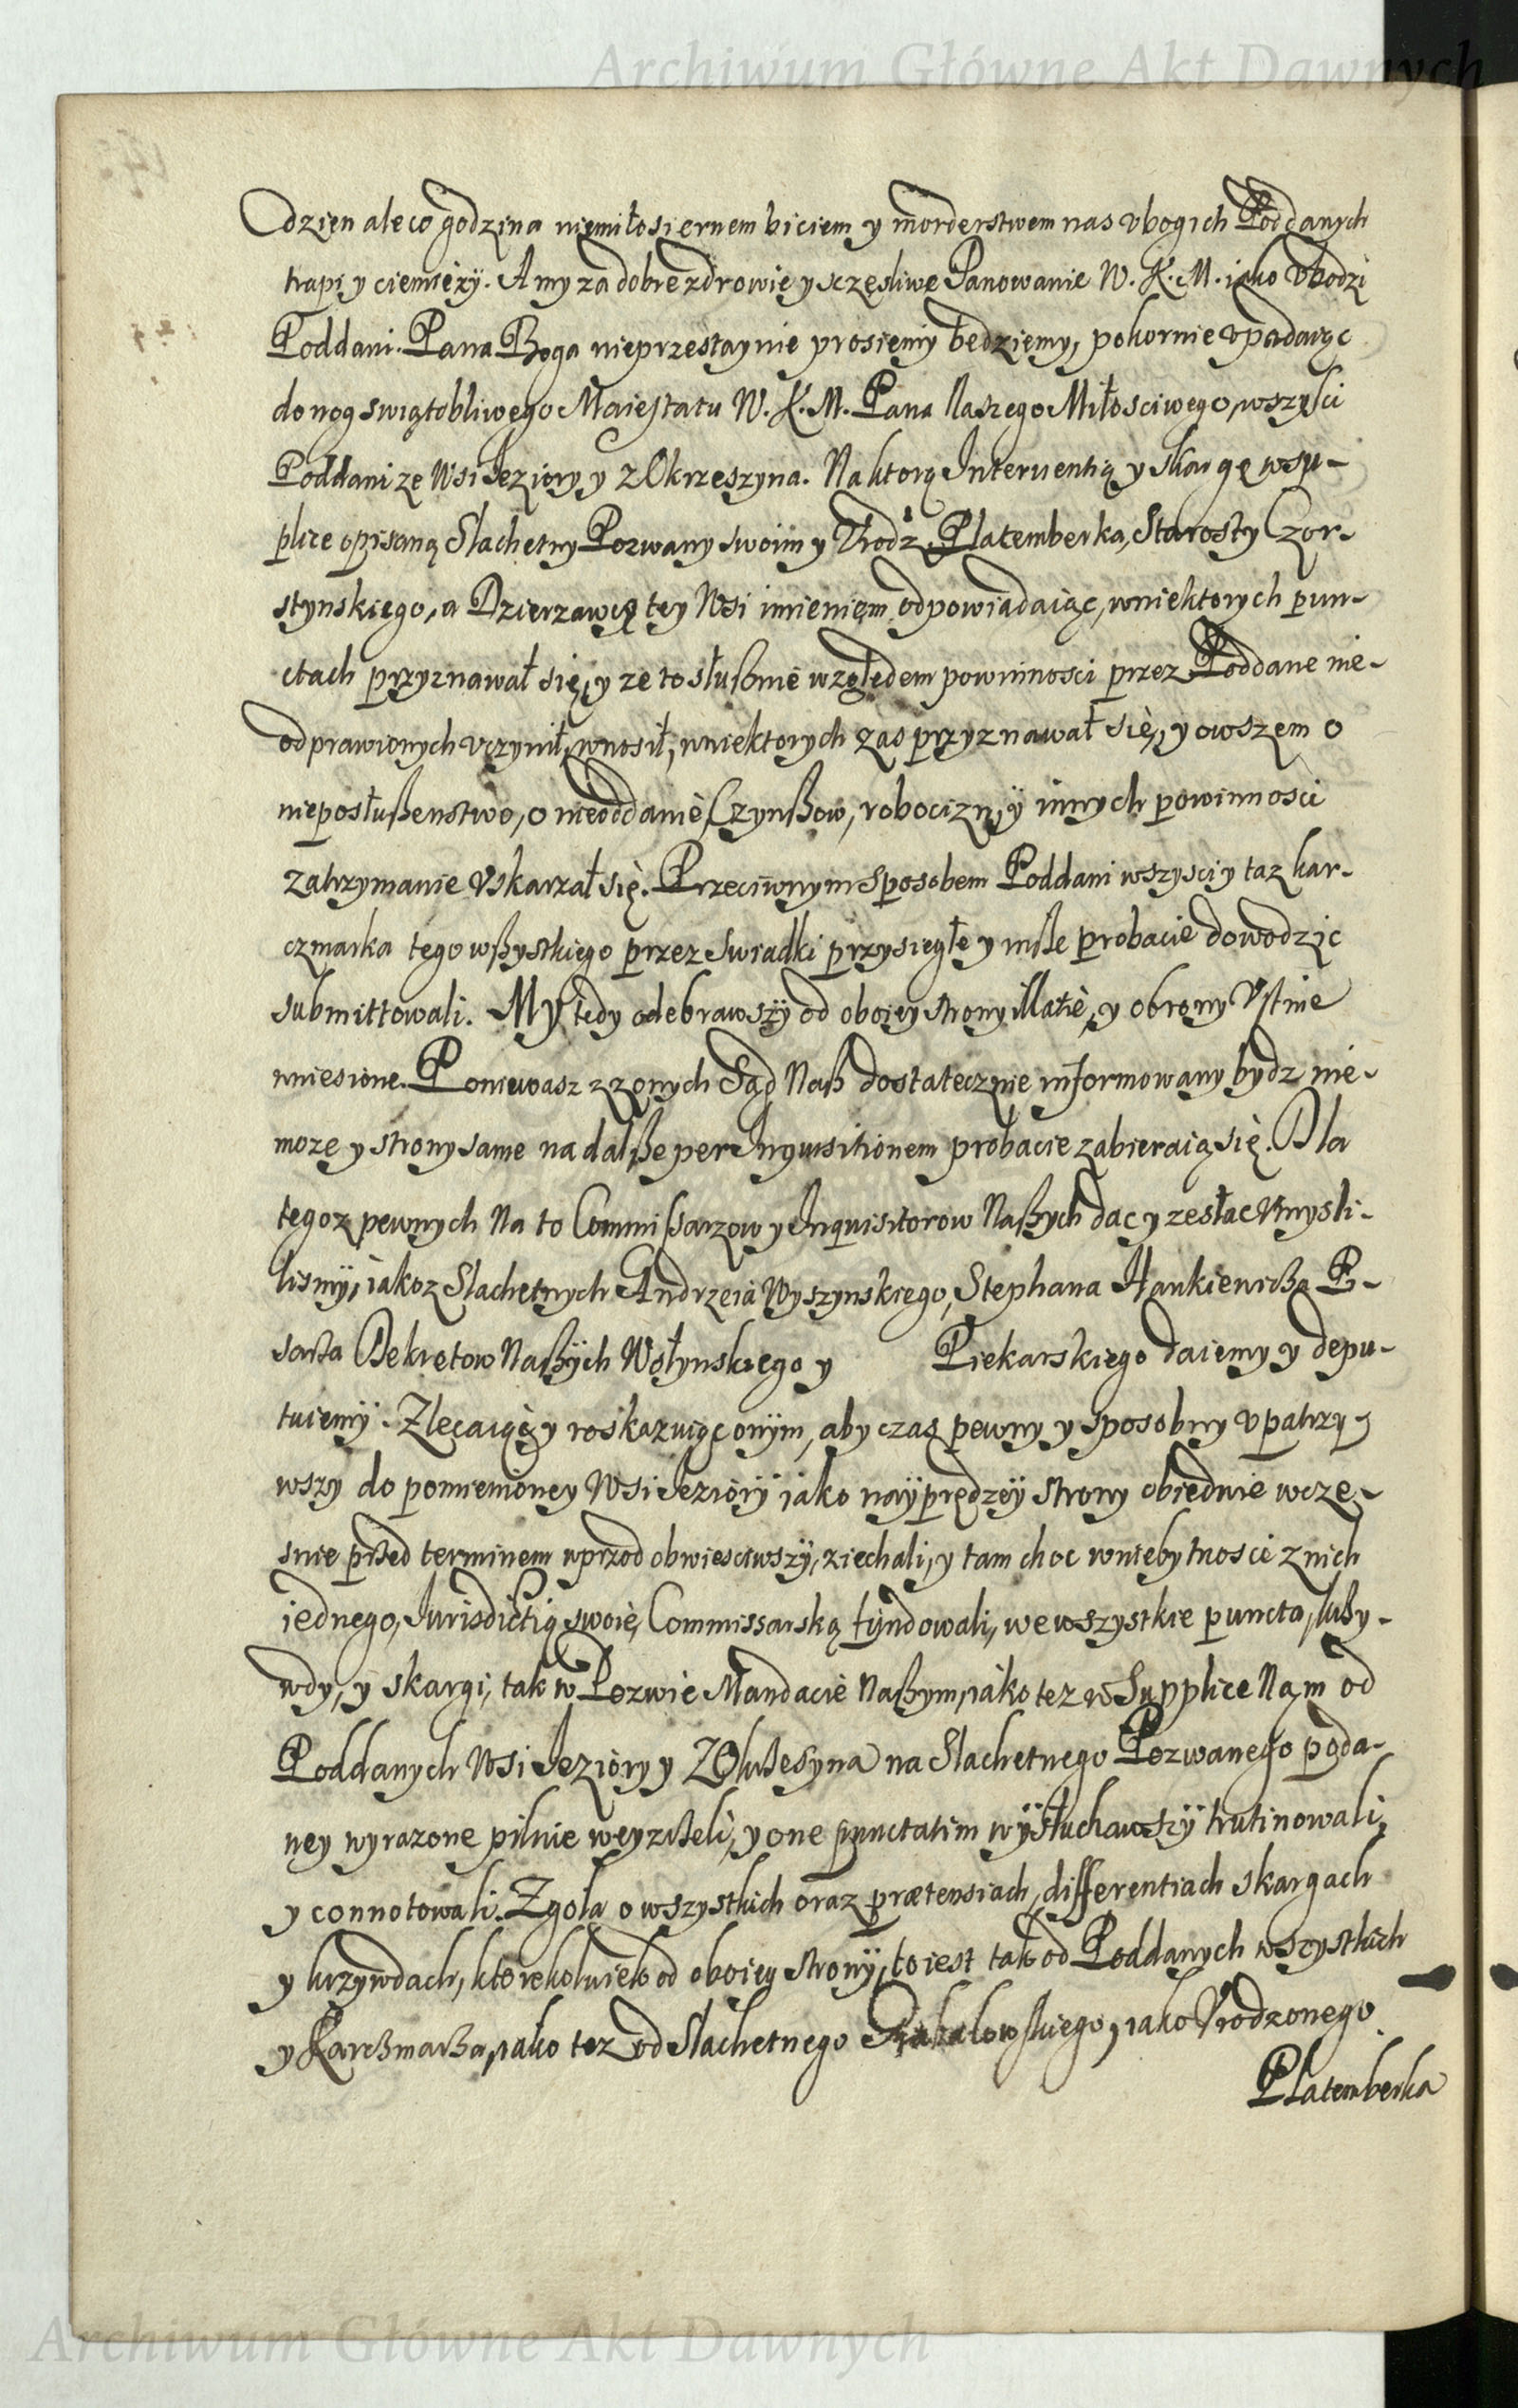 Archiwum Główne Akt Dawnych
dzien ale co godzina niemiłosiernem biciem y morderstwem nas vbogich Poddanych
trapi y ciemięzÿ. A my za dobre zdrowie y sczęsliwe Panowanie W. K. M. iako Vbodzi
Poddani. Pana Boga nieprzestaynie prosiemy będziemy, pokornie vpadaiąc
do nog swiątobliwego Maiestatu W. K. M. Pana Naszego Miłosciwego, wszysci
Poddani ze Wsi Jeziory y z Okrzeszyna. Na ktorą Interuentią y skargę w su-
plice opisaną Slachetny Pozwany swoim y Vrodz. Platemberka, Starosty Czor-
stynskiego, a Dzierzawcę tey Wsi imieniem odpowiadaiąc, w niektorych pun-
ctach przyznawał się, y ze to słußnie względem powinnosci przez Poddane nie-
odprawionych vczynił, wnosił, w niektorych zas przyznawał się, y owszem o
nieposłußenstwo, o nieoddanie Czynßow, robocizn, ÿ innych powinnosci
zatrzymanie Vskarzał się. Przeciwnym sposobem Poddani wszysci y taz kar-
czmarka tego wßystkiego przez swiadki przysięgłe y inße probacie dowodzic
submittowali. My tedy odebrawszÿ od oboiey strony illatie, y obrony Vstnie
wniesione. Poniewasz z zonych Sąd Naß dostatecznie informowany bydz nie-
moze y strony same na dalße per Inquisitionem probacie zabieraią się. Dla
tegoz pewnych na to Commissarzow y Inquisitorow Naßych dac y zesłac vmysli-
lismÿ, iakoz Slachetnych Andrzeia Wyszynskiego, Stephana Hankiewicza Pi-
sarza Dekretow Naßych Wołynskiego y Piekarskiego daiemy y depu-
tuiemÿ. Zlecaiąc y roskazuiąc onÿm, aby czas pewny y sposobny vpatrzy-
wszy do pomienioney Wsi Jeziorÿ iako naÿprędzeÿ strony obiedwie wcze-
snie przed terminem wprzod obwiesciwszÿ, ziechali, y tam choc w niebytnosci z nich
iednego, Jurisdictią swoię, Commissarską fundowali, we wszystkie puncta, krzy-
wdy, y skargi, tak w Pozwie Mandacie Naßym, iako tez w Supplice Nam od
Poddanych Wsi Jeziory y Z Okrzesyna na Slachetnego Pozwanego poda-
ney wyrazone pilnie weyzrzeli, y one punctatim wÿsłuchawszÿ trutinowali,
y connotowali. Zgoła o wszystkich oraz prætensiach, differentiach skargach
y krzywdach, ktorekolwiek od oboiey stronÿ, to iest tak od Poddanych wszystkich
y Karczmarza, iako tez od Slachetnego iako Vrodzonego
Platemberka
Archiwum Główne Akt Dawnych